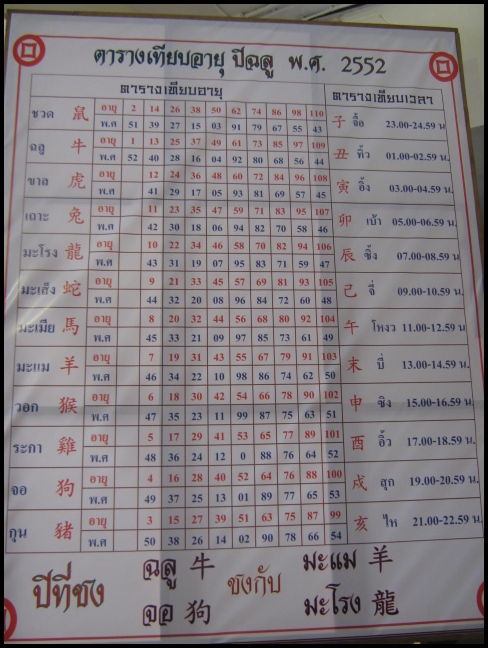 ตารางเทียบอายุ ปีฉลู พ.ศ. 2552
ตารางเทียบอายุ ตารางเทียบเวลา
ชวด 鼠 อายุ 2 14 26 38 50 62 74 86 98 110 子 จื้อ 23.00-24.59 น.
พ.ศ 51 39 27 15 03 91 79 67 55 43
ฉลู 牛 อายุ 1 13 25 37 49 61 73 85 97 109 丑 ทิ้ว 01.00-02.59 น.
พ.ศ 52 40 28 16 04 92 80 68 56 44
ขาล 虎 อายุ 12 24 36 48 60 72 84 96 108 寅 อิ้ง 03.00-04.59 น.
พ.ศ 41 29 17 05 93 81 69 57 45
เถาะ 兔 อายุ 11 23 35 47 59 71 83 95 107 卯 เบ้า 05.00-06.59 น.
พ.ศ 42 30 18 06 94 82 70 58 46
มะโรง 龍 อายุ 10 22 34 46 58 70 82 94 106 辰 ซิ้ง 07.00-08.59 น.
พ.ศ 43 31 19 07 95 83 71 59 47
มะเส็ง 蛇 อายุ 9 21 33 45 57 69 81 93 105 己 จี๋ 09.00-10.59 น.
พ.ศ 44 32 20 08 96 84 72 60 48
มะเมีย 馬 อายุ 8 20 32 44 56 68 80 92 104 午 โหงว 11.00-12.59 น.
พ.ศ 45 33 21 09 97 85 73 61 49
มะแม 羊 อายุ 7 19 31 43 55 67 79 91 103 未 บี่ 13.00-14.59 น.
พ.ศ 46 34 22 10 98 86 74 62 50
วอก 猴 อายุ 6 18 30 42 54 66 78 90 102 申 ซิง 15.00-16.59 น.
พ.ศ 47 35 23 11 99 87 75 63 51
ระกา 雞 อายุ 5 17 29 41 53 65 77 89 101 酉 อิ้ว 17.00-18.59 น.
พ.ศ 48 36 24 12 0 88 76 64 52
จอ 狗 อายุ 4 16 28 40 52 64 76 88 100 戌 สุก 19.00-20.59 น.
พ.ศ 49 37 25 13 01 89 77 65 53
กุน 豬 อายุ 3 15 27 39 51 63 75 87 99 亥 ไห 21.00-22.59 น.
พ.ศ 50 38 26 14 02 90 78 66 54
ปีที่ชง ฉลู 牛 ชงกับ มะแม 羊
จอ 狗 มะโรง 龍